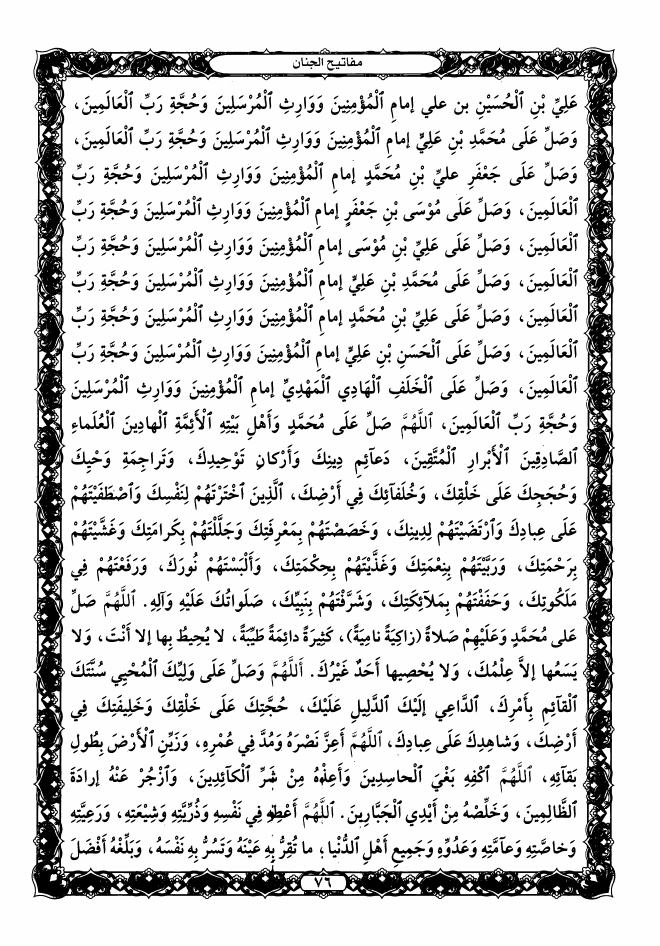 مفاتيح الجنان
عَلِيِّ بْنِ ٱلْحُسَيْنِ بن علي إمامِ ٱلْمُؤْمِنِينَ وَوَارِثِ ٱلْمُرْسَلِينَ وَحُجَّةِ رَبِّ ٱلْعَالَمِينَ،
وَصَلِّ عَلَى مُحَمَّدِ بْنِ عَلِيٍّ إمامِ ٱلْمُؤْمِنِينَ وَوَارِثِ ٱلْمُرْسَلِينَ وَحُجَّةِ رَبِّ ٱلْعَالَمِينَ،
وَصَلِّ عَلَى جَعْفَرِ عليِّ بْنِ مُحَمَّدٍ إمامِ ٱلْمُؤْمِنِينَ وَوَارِثِ ٱلْمُرْسَلِينَ وَحُجَّةِ رَبِّ
ٱلْعَالَمِينَ، وَصَلِّ عَلَى مُوْسَى بْنِ جَعْفَرٍ إمامِ ٱلْمُؤْمِنِينَ وَوَارِثِ ٱلْمُرْسَلِينَ وَحُجَّةِ رَبِّ
ٱلْعَالَمِينَ، وَصَلِّ عَلَى عَلِيِّ بْنِ مُوْسَى إمامِ ٱلْمُؤْمِنِينَ وَوَارِثِ ٱلْمُرْسَلِينَ وَحُجَّةِ رَبِّ
ٱلْعَالَمِينَ، وَصَلِّ عَلَى مُحَمَّدِ بْنِ عَلِيٍّ إمامِ ٱلْمُؤْمِنِينَ وَوَارِثِ ٱلْمُرْسَلِينَ وَحُجَّةِ رَبِّ
ٱلْعَالَمِينَ، وَصَلِّ عَلَى عَلِيِّ بْنِ مُحَمَّدٍ إمامِ ٱلْمُؤْمِنِينَ وَوَارِثِ ٱلْمُرْسَلِينَ وَحُجَّةِ رَبِّ
ٱلْعَالَمِينَ، وَصَلِّ عَلَى ٱلْحَسَنِ بْنِ عَلِيٍّ إمامِ ٱلْمُؤْمِنِينَ وَوَارِثِ ٱلْمُرْسَلِينَ وَحُجَّةِ رَبِّ
ٱلْعَالَمِينَ، وَصَلِّ عَلَى ٱلْخَلَفِ ٱلْهَادِي ٱلْمَهْدِيِّ إمامِ ٱلْمُؤْمِنِينَ وَوَارِثِ ٱلْمُرْسَلِينَ
وَحُجَّةِ رَبِّ ٱلْعَالَمِينَ، اَللَّهُمَّ صَلِّ عَلَى مُحَمَّدٍ وَأَهْلِ بَيْتِهِ ٱلْأَئِمَّةِ ٱلْهادِينَ ٱلْعُلَماءِ
ٱلصَّادِقِينَ ٱلْأَبْرارِ ٱلْمُتَّقِينَ، دَعآئِمِ دِينِكَ وَأَرْكانِ تَوْحِيدِكَ، وَتَراجِمَةِ وَحْيِكَ
وَحُجَجِكَ عَلَى خَلْقِكَ، وَخُلَفآئِكَ فِي أَرْضِكَ، ٱلَّذِينَ ٱخْتَرْتَهُمْ لِنَفْسِكَ وَٱصْطَفَيْتَهُمْ
عَلَى عِبادِكَ وَٱرْتَضَيْتَهُمْ لِدِينِكَ، وَخَصَصْتَهُمْ بِمَعْرِفَتِكَ وَجَلَّلْتَهُمْ بِكَرامَتِكَ وَغَشَّيْتَهُمْ
بِرَحْمَتِكَ، وَرَبَّيْتَهُمْ بِنِعْمَتِكَ وَغَذَّيْتَهُمْ بِحِكْمَتِكَ، وَأَلْبَسْتَهُمْ نُورَكَ، وَرَفَعْتَهُمْ فِي
مَلَكُوتِكَ، وَحَفَفْتَهُمْ بِمَلآئِكَتِكَ، وَشَرَّفْتَهُمْ بِنَبِيِّكَ، صَلَواتُكَ عَلَيْهِ وَآلِهِ. اَللَّهُمَّ صَلِّ
عَلى مُحَمَّدٍ وَعَلَيْهِمْ صَلاةً (زاكِيَةً نامِيَةً)، كَثِيرَةً دائِمَةً طَيِّبَةً، لا يُحِيطُ بِها إلا أَنْتَ، وَلا
يَسَعُها إلاَّ عِلْمُكَ، وَلا يُحْصِيها أَحَدٌ غَيْرُكَ. اَللَّهُمَّ وَصَلِّ عَلَى وَلِيِّكَ ٱلْمُحْيِي سُنَّتَكَ
ٱلْقآئِمِ بِأَمْرِكَ، ٱلدَّاعِي إلَيْكَ ٱلدَّلِيلِ عَلَيْكَ، حُجَّتِكَ عَلَى خَلْقِكَ وَخَلِيفَتِكَ فِي
أَرْضِكَ، وَشاهِدِكَ عَلَى عِبادِكَ، اَللَّهُمَّ أَعِزَّ نَصْرَهُ وَمُدَّ فِي عُمْرِهِ، وَزَيِّنِ ٱلْأَرْضَ بِطُولِ
بَقائِهِ، اَللَّهُمَّ ٱكْفِهِ بَغْيَ ٱلْحاسِدِينَ وَأَعِذْهُ مِنْ شَرِّ ٱلْكآئِدِينَ، وَٱزْجُرْ عَنْهُ إرادَةَ
ٱلظَّالِمِينَ، وَخَلِّصْهُ مِنْ أَيْدِي ٱلْجَبَّارِينَ. اَللَّهُمَّ أَعْطِهِ فِي نَفْسِهِ وَذُرِّيَّتِهِ وَشِيْعَتِهِ، وَرَعِيَّتِهِ
وَخاصَّتِهِ وَعآمَّتِهِ وَعَدُوِّهِ وَجَمِيعِ أَهْلِ ٱلدُّنْيا؛ ما تُقِرُّ بِهِ عَيْنَهُ وَتَسُرُّ بِهِ نَفْسَهُ، وَبَلِّغْهُ أَفْضَلَ
٧٦